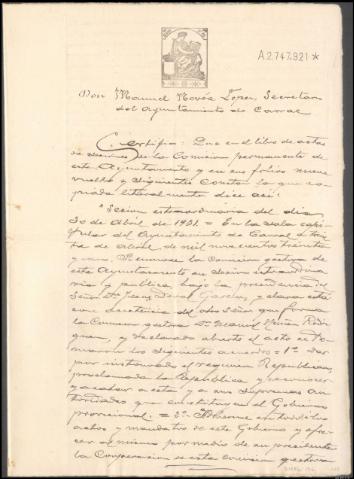 A2.747.921*
Don Manuel Novás López, Secretario
del Ayuntamiento de Carral
Certifico: Que en el libro de actas
de sesiones de la Comisión permanente de
este Ayuntamiento y en sus folios nueve
vuelto y siguientes consta la que co-
piada literalmente dice así:
"Sesión extraordinaria del día
30 de Abril de 1931 = En la sala capi-
tular del Ayuntamiento de Carral a trein-
ta de abril de mil novecientos treinta
y uno. Se reunió la Comisión gestora de
este Ayuntamiento en sesión extraordina-
ria y pública bajo la presidencia del
Señor Don
con asistencia del otro Señor que forma
la Comisión gestora Dn Manuel
y declarado abierto el acto se to-
maron los siguientes acuerdos = 1º Dar
por instaurado el régimen Republicano,
proclamada la República y reconocer
y acatar a esta y a sus supremas au-
toridades que constituyen el Gobierno
provisional. = 2º
actos y mandatos de este Gobierno y ofre-
cer al mismo por medio de su presidente
la cooperación de esta comisión gestora